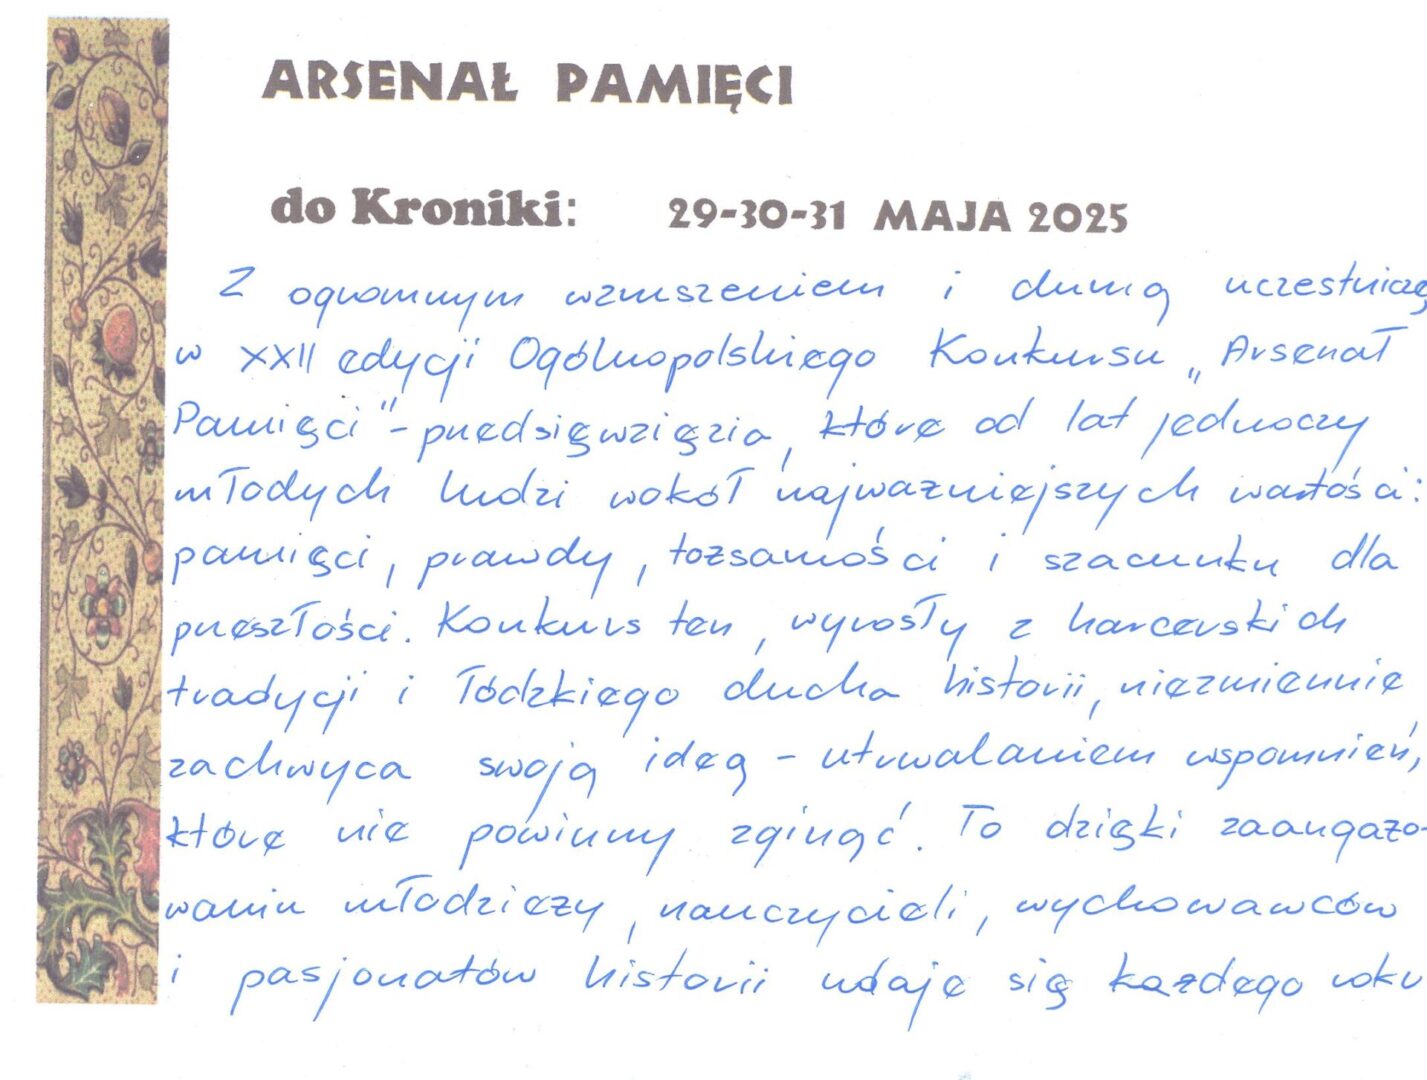 ARSENAŁ PAMIĘCI
do Kroniki: 29-30-31 MAJA 2025
Z ogromnym wzruszeniem i dumą uczestniczę
w XXII edycji Ogólnopolskiego Konkursu „Arsenał
Pamięci" - przedsięwzięcia, które od lat jednoczy
młodych ludzi wokół najważniejszych wartości:
pamięci, prawdy, tożsamości i szacunku dla
przeszłości. Konkurs ten, wyrosły z harcerskich
tradycji i łódzkiego ducha historii, niezmiennie
zachwyca swoją ideą - utrwalaniem wspomnień,
które nie powinny zginąć. To dzięki zaangażo-
waniu młodzieży, nauczycieli, wychowawców
i pasjonatów historii udaje się każdego roku